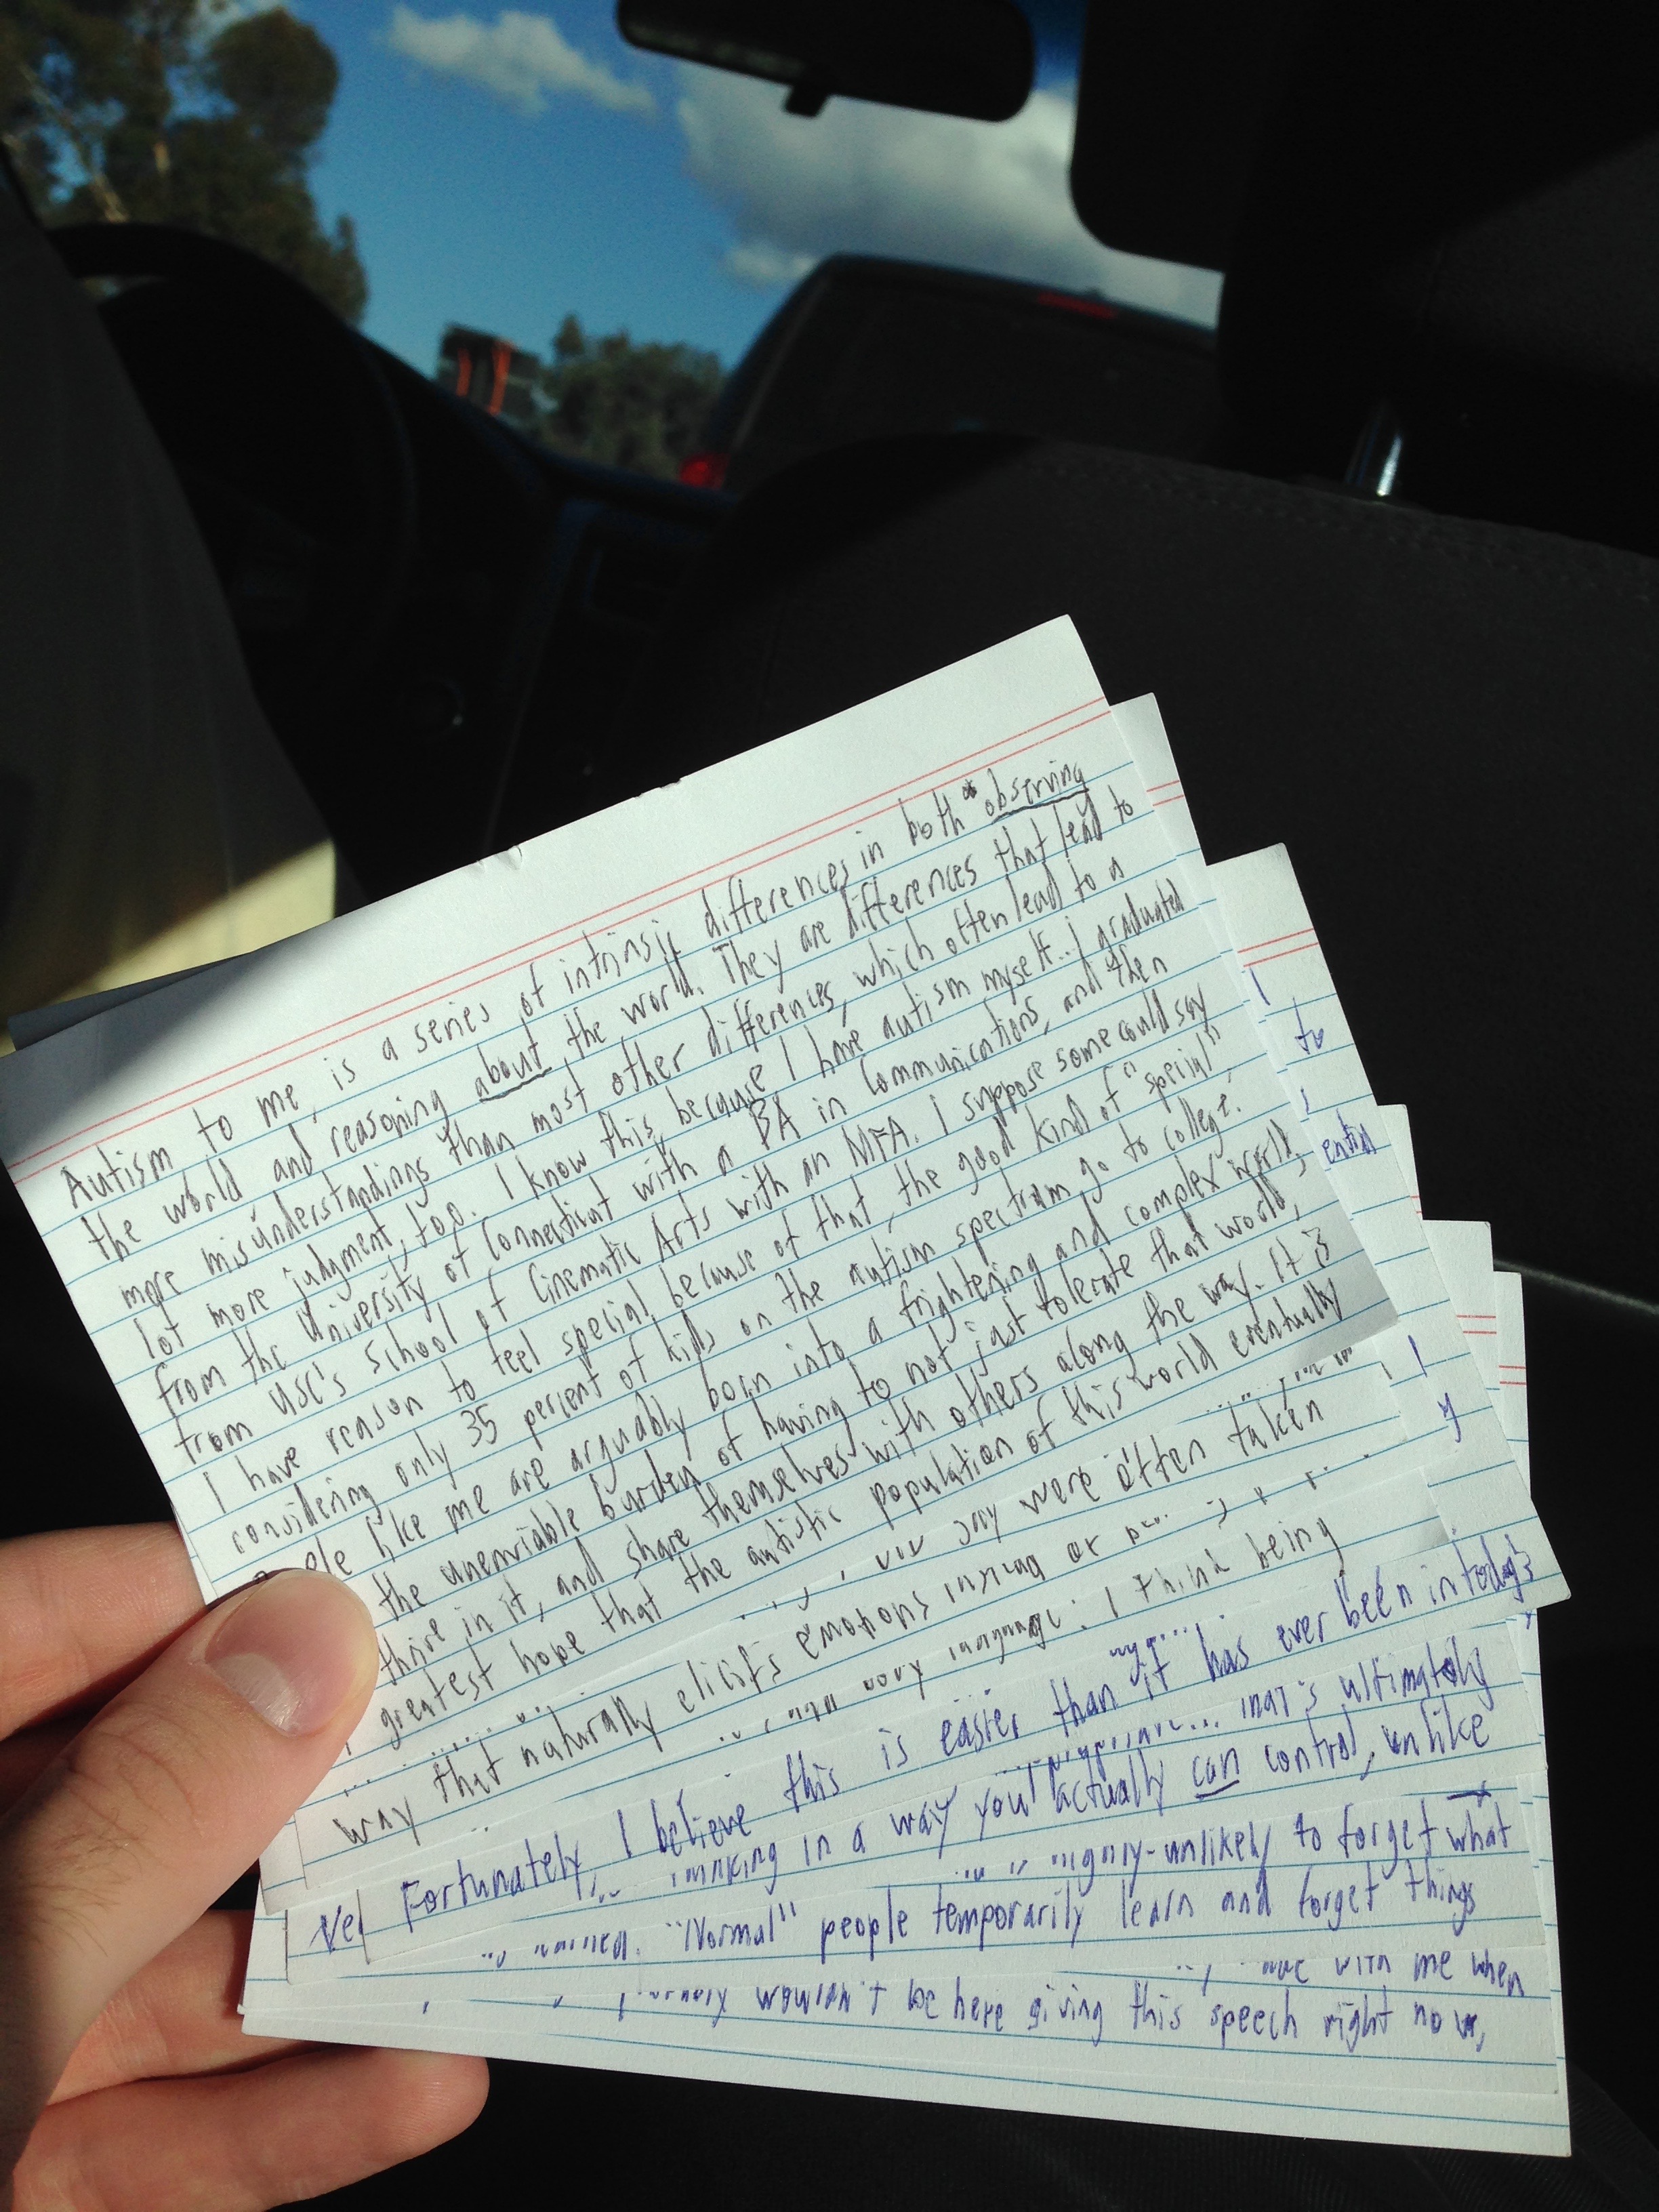 Autism to me, is a series of intrinsic differences in both observing
the world and reasoning about the world. They are differences that lead to
more misunderstandings than most other differences, which often lead to a
lot more judgment, too. I know this because I have autism myself... I graduated
from the University of Connecticut with a BA in Communications, and then
from USC's School of Cinematic Arts with an MFA. I suppose some could say
I have reason to feel special because of that, the good kind of "special",
considering only 35 percent of kids on the autism spectrum go to college.
like me are arguably born into a frightening and complex world,
the unenviable burden of having to not just tolerate that world,
thrive in it, and share themselves with others along the way. It is
greatest hope that the autistic population of this world eventually
say were often taken
way that naturally elicits emotions instead of
body language. I think being
Fortunately, I believe this is easier than it has ever been in today's
that's ultimately
in a way you actually can control, unlike
highly-unlikely to forget what
"Normal" people temporarily learn and forget things
with me when
wouldn't be here giving this speech right now,
to
y